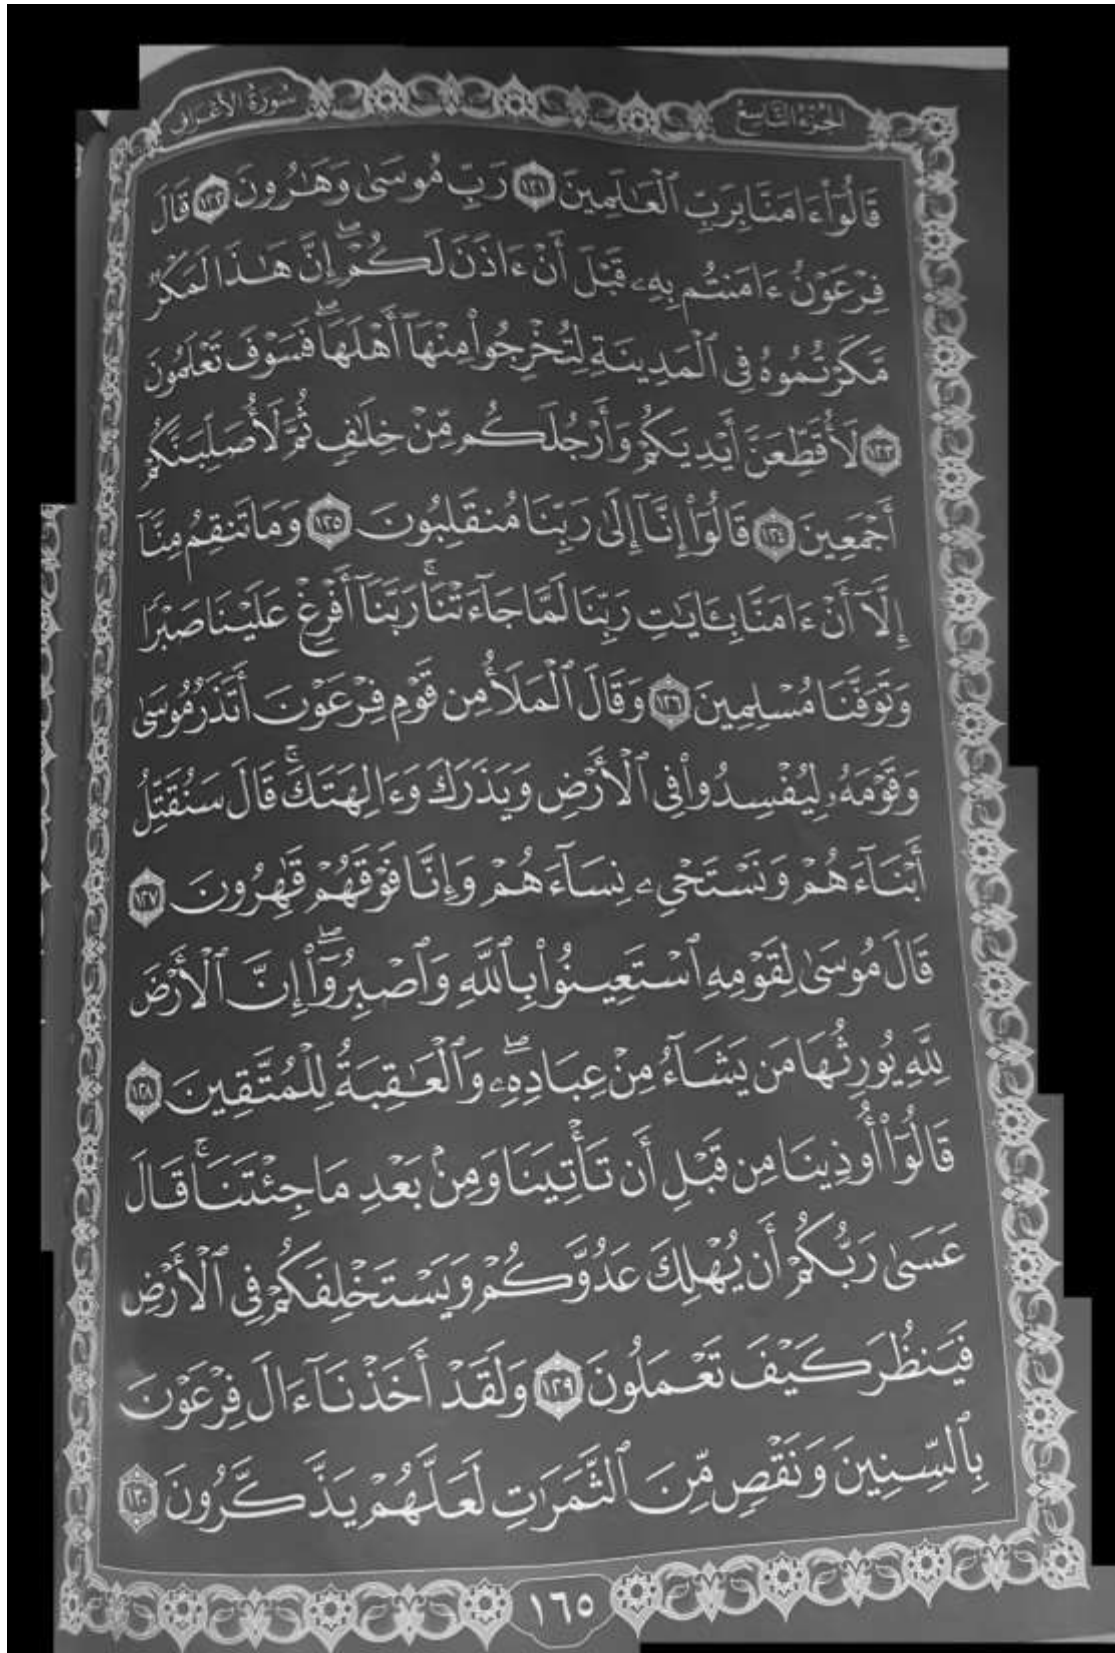 الجزء التاسع
سورة الأعراف
قَالُوٓا۟ ءَامَنَّا بِرَبِّ ٱلْعَٰلَمِينَ ١٢١ رَبِّ مُوسَىٰ وَهَٰرُونَ ١٢٢ قَالَ
فِرْعَوْنُ ءَامَنتُم بِهِۦ قَبْلَ أَنْ ءَاذَنَ لَكُمْ ۖ إِنَّ هَٰذَا لَمَكْرٌ
مَّكَرْتُمُوهُ فِى ٱلْمَدِينَةِ لِتُخْرِجُوا۟ مِنْهَآ أَهْلَهَا ۖ فَسَوْفَ تَعْلَمُونَ
١٢٣ لَأُقَطِّعَنَّ أَيْدِيَكُمْ وَأَرْجُلَكُم مِّنْ خِلَٰفٍ ثُمَّ لَأُصَلِّبَنَّكُمْ
أَجْمَعِينَ ١٢٤ قَالُوٓا۟ إِنَّآ إِلَىٰ رَبِّنَا مُنقَلِبُونَ ١٢٥ وَمَا تَنقِمُ مِنَّآ
إِلَّآ أَنْ ءَامَنَّا بِـَٔايَٰتِ رَبِّنَا لَمَّا جَآءَتْنَا ۚ رَبَّنَآ أَفْرِغْ عَلَيْنَا صَبْرًا
وَتَوَفَّنَا مُسْلِمِينَ ١٢٦ وَقَالَ ٱلْمَلَأُ مِن قَوْمِ فِرْعَوْنَ أَتَذَرُ مُوسَىٰ
وَقَوْمَهُۥ لِيُفْسِدُوا۟ فِى ٱلْأَرْضِ وَيَذَرَكَ وَءَالِهَتَكَ ۚ قَالَ سَنُقَتِّلُ
أَبْنَآءَهُمْ وَنَسْتَحْىِۦ نِسَآءَهُمْ وَإِنَّا فَوْقَهُمْ قَٰهِرُونَ ١٢٧
قَالَ مُوسَىٰ لِقَوْمِهِ ٱسْتَعِينُوا۟ بِٱللَّهِ وَٱصْبِرُوٓا۟ ۖ إِنَّ ٱلْأَرْضَ
لِلَّهِ يُورِثُهَا مَن يَشَآءُ مِنْ عِبَادِهِۦ ۖ وَٱلْعَٰقِبَةُ لِلْمُتَّقِينَ ١٢٨
قَالُوٓا۟ أُوذِينَا مِن قَبْلِ أَن تَأْتِيَنَا وَمِنۢ بَعْدِ مَا جِئْتَنَا ۚ قَالَ
عَسَىٰ رَبُّكُمْ أَن يُهْلِكَ عَدُوَّكُمْ وَيَسْتَخْلِفَكُمْ فِى ٱلْأَرْضِ
فَيَنظُرَ كَيْفَ تَعْمَلُونَ ١٢٩ وَلَقَدْ أَخَذْنَآ ءَالَ فِرْعَوْنَ
بِٱلسِّنِينَ وَنَقْصٍ مِّنَ ٱلثَّمَرَٰتِ لَعَلَّهُمْ يَذَّكَّرُونَ ١٣٠
١٦٥